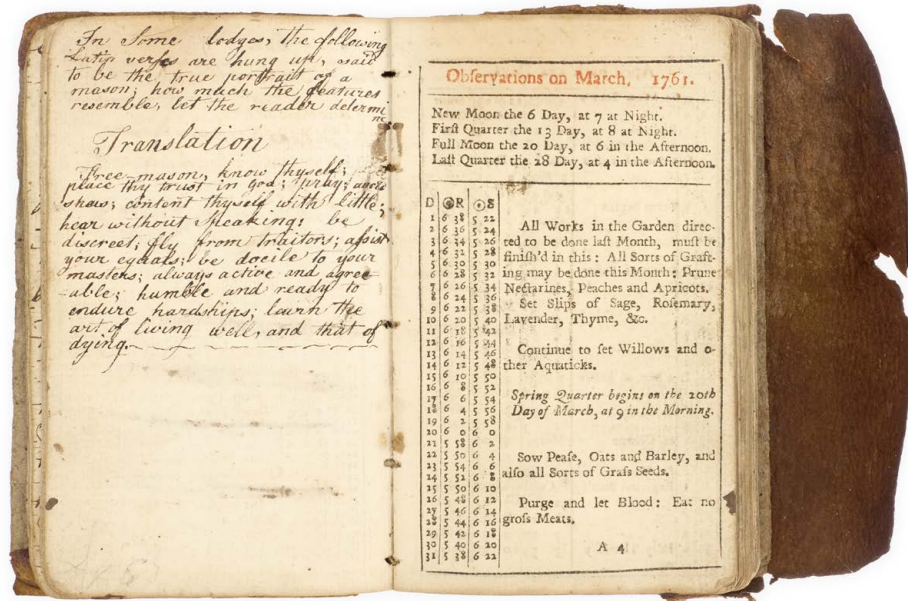 In Some lodges, the following
Latin verses are hung up, said
to be the true portrait of a
mason; how much the features
resemble, let the reader determi
ne
Translation
Free-mason, know thyself;
place thy trust in God; pray;
shaw; content thyself with little;
hear without speaking; be
discreet; fly from traitors; assist
your equals; be docile to your
masters; always active and agree-
-able; humble and ready to
endure hardships; learn the
art of living well, and that of
dying.
Observations on March, 1761.
New Moon the 6 Day, at 7 at Night.
First Quarter the 13 Day, at 8 at Night.
Full Moon the 20 Day, at 6 in the Afternoon.
Last Quarter the 28 Day, at 4 in the Afternoon.
D ☉R ☉S
1 6 38 5 22
2 6 36 5 24
3 6 34 5 26
4 6 32 5 28
5 6 30 5 30
6 6 28 5 32
7 6 26 5 34
8 6 24 5 36
9 6 22 5 38
10 6 20 5 40
11 6 18 5 42
12 6 16 5 44
13 6 14 5 46
14 6 12 5 48
15 6 10 5 50
16 6 8 5 52
17 6 6 5 54
18 6 4 5 56
19 6 2 5 58
20 6 0 6 0
21 5 58 6 2
22 5 50 6 4
23 5 54 6 6
24 5 52 6 8
25 5 50 6 10
26 5 48 6 12
27 5 46 6 14
28 5 44 6 16
29 5 42 6 18
30 5 40 6 20
31 5 38 6 22
All Works in the Garden direc-
ted to be done last Month, must be
finish'd in this: All Sorts of Graft-
ing may be done this Month: Prune
Nectarines, Peaches and Apricots.
Set Slips of Sage, Rosemary,
Lavender, Thyme, &c.
Continue to set Willows and o-
ther Aquaticks.
Spring Quarter begins on the 20th
Day of March, at 9 in the Morning.
Sow Pease, Oats and Barley, and
also all Sorts of Grass Seeds.
Purge and let Blood: Eat no
gross Meats.
A 4